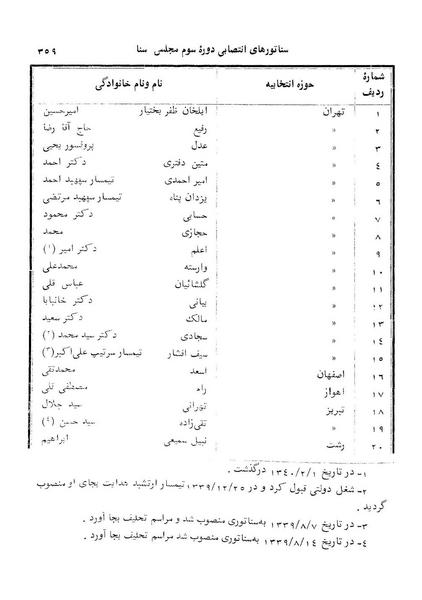 سناتورهای انتصابی دورهٔ سوم مجلس سنا ۳۵۹
شمارهٔ ردیف حوزه انتخابیه نام ونام خانوادگی
۱ تهران ایلخان ظفر بختیار امیرحسین
۲ » رفیع حاج آقا رضا
۳ » عدل پروفسور یحیی
۴ » متین دفتری دکتر احمد
۵ » امیر احمدی تیمسار سپهبد احمد
۶ » یزدان پناه تیمسار سپهبد مرتضی
۷ » حسابی دکتر محمود
۸ » حجازی محمد
۹ » اعلم دکتر امیر (۱)
۱۰ » وارسته محمدعلی
۱۱ » گلشائیان عباس قلی
۱۲ » بیانی دکتر خانبابا
۱۳ » مالک دکتر سعید
۱۴ » سجادی دکتر سید محمد (۲)
۱۵ » سیف افشار تیمسار سرتیپ علی‌اکبر(۳)
۱۶ اصفهان اسعد محمدتقی
۱۷ اهواز راد مصطفی قلی
۱۸ تبریز تهرانی سید جلال
۱۹ » تقی‌زاده سید حسن (۴)
۲۰ رشت نبیل سمیعی ابراهیم
۱– در تاریخ ۱۳۴۰/۲/۱ درگذشت .
۲– شغل دولتی قبول کرد و در ۱۳۳۹/۱۲/۲۵، تیمسار ارتشبد هدایت بجای او منصوب
گردید .
۳– در تاریخ ۱۳۳۹/۸/۷ به‌سناتوری منصوب شد و مراسم تحلیف بجا آورد .
۴– در تاریخ ۱۳۳۹/۸/۱۴ به‌سناتوری منصوب شد ومراسم تحلیف بجا آورد .